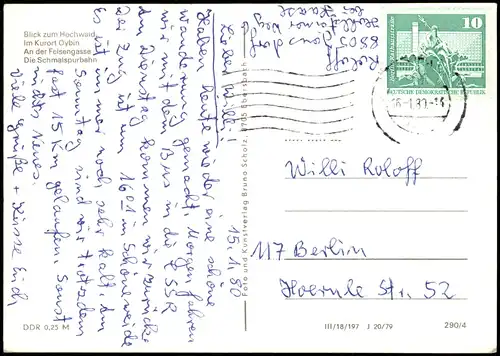 Blick zum Hochwald
Im Kurort Oybin
An der Felsengasse
Die Schmalspurbahn
15.1.80
Lieber Willi!
Haben heute wieder eine schöne
Wanderung gemacht. Morgen fahren
wir mit dem Bus in die ČSSR
Am Dienstag kommen wir zurück
Der Zug ist um 16 01 in Schöneweide
Es ist immer noch sehr kalt, am
Sonntag sind wir trotzdem
fast 15 Km gelaufen. Sonst
nichts Neues.
Viele Grüße + Küsse Euch
DDR 0,25 M
Foto und Kunstverlag Bruno Scholz, 8705 Ebersbach
Roloff
bei Haase
10
DEUTSCHE DEMOKRATISCHE REPUBLIK
Willi Roloff
117 Berlin
Hoernle Str. 52
III/18/197 J 20/79
290/4